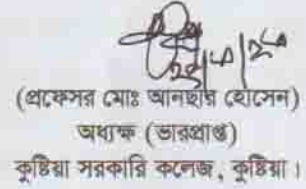 (প্রফেসর মোঃ আনছার হোসেন)
অধ্যক্ষ (ভারপ্রাপ্ত)
কুষ্টিয়া সরকারি কলেজ, কুষ্টিয়া।